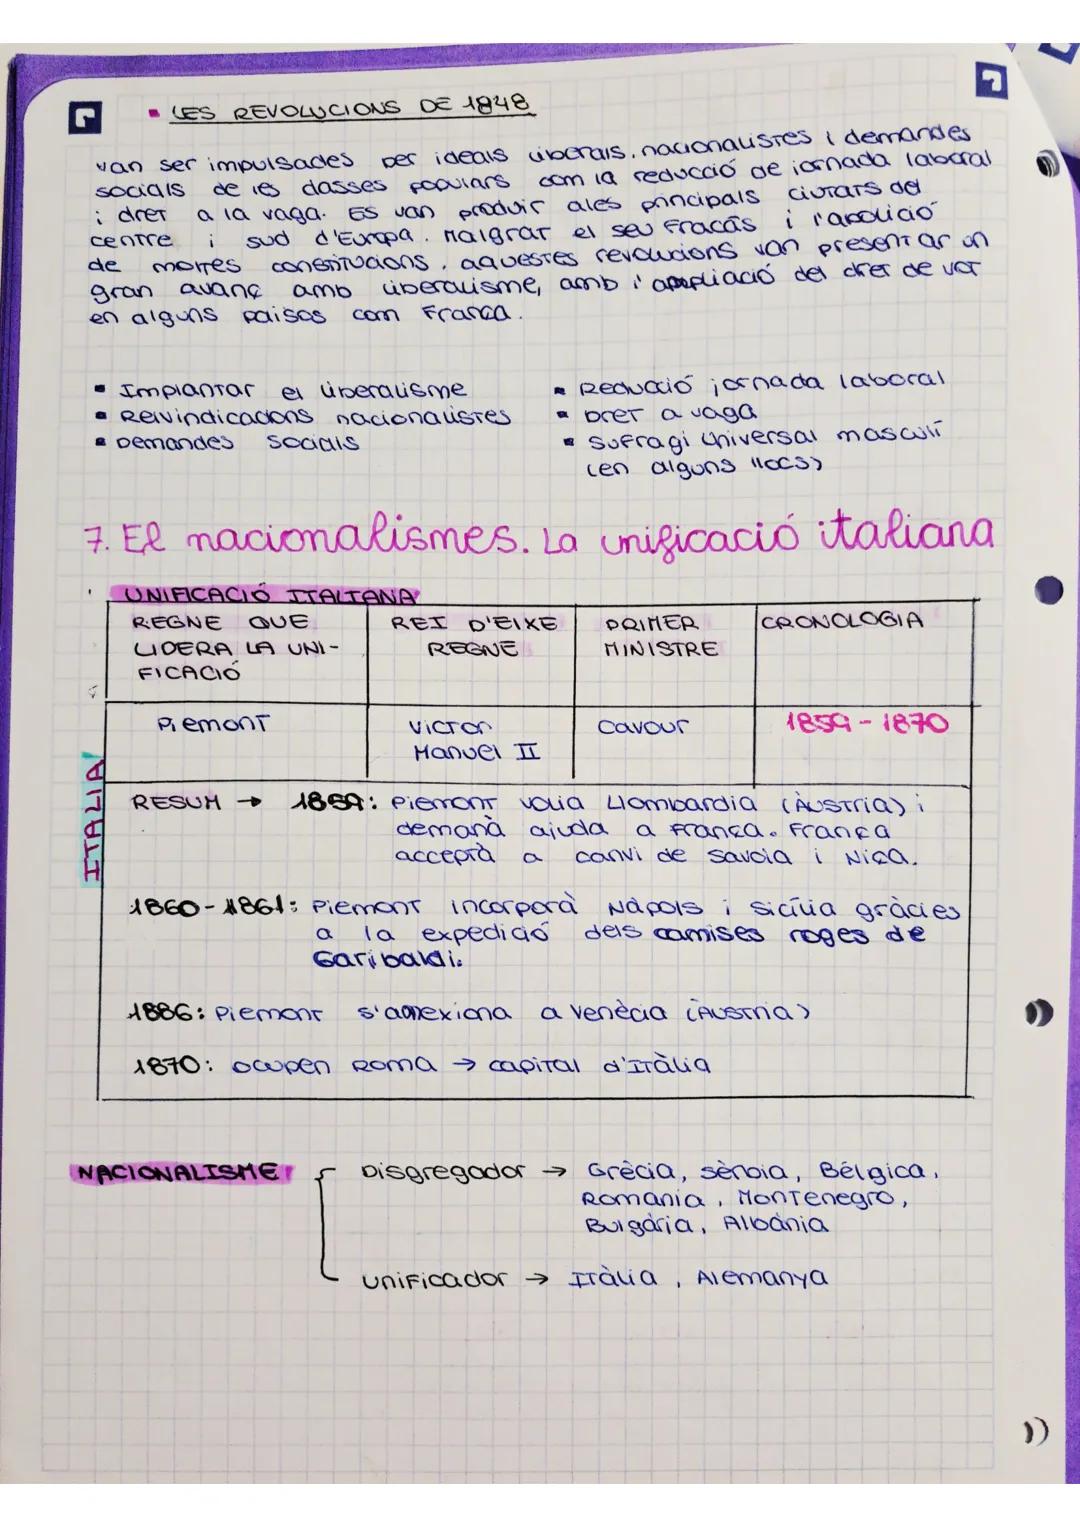 ▪ LES REVOLUCIONS DE 1848
van ser impulsades per ideals liberals, nacionalistes i demandes
socials de les classes populars com la reducció de jornada laboral
i dret a la vaga. Es van produir a les principals ciutats del
centre i sud d'Europa. Malgrat el seu fracàs i l'abolició
de moltes constitucions, aquestes revolucions van presentar un
gran avanç amb liberalisme, amb l'ampliació del dret de vot
en alguns països com França.
▪ Implantar el liberalisme
▪ Reivindicacions nacionalistes
▪ Demandes socials
▪ Reducció jornada laboral
▪ Dret a vaga
▪ Sufragi universal masculí
(en alguns llocs)
7. El nacionalismes. La unificació italiana
UNIFICACIÓ ITALIANA
REGNE QUE
LIDERA LA UNI-
FICACIÓ
REI D'EIXE
REGNE
PRIMER
MINISTRE
CRONOLOGIA
Piemont
Victor
Manuel II
Cavour
1859 - 1870
ITALIA
RESUM → 1859: Piemont volia Llombardia (Àustria) i
demanà ajuda a França. França
acceptà a canvi de Savoia i Niça.
1860-1861: Piemont incorporà Nàpols i Sicília gràcies
a la expedició dels camises roges de
Garibaldi.
1886: Piemont s'annexiona a Venècia (Àustria)
1870: ocupen Roma → capital d'Itàlia
NACIONALISME
Disgregador → Grècia, Sèrbia, Bélgica,
Romania, Montenegro,
Bulgària, Albània
Unificador → Itàlia, Alemanya